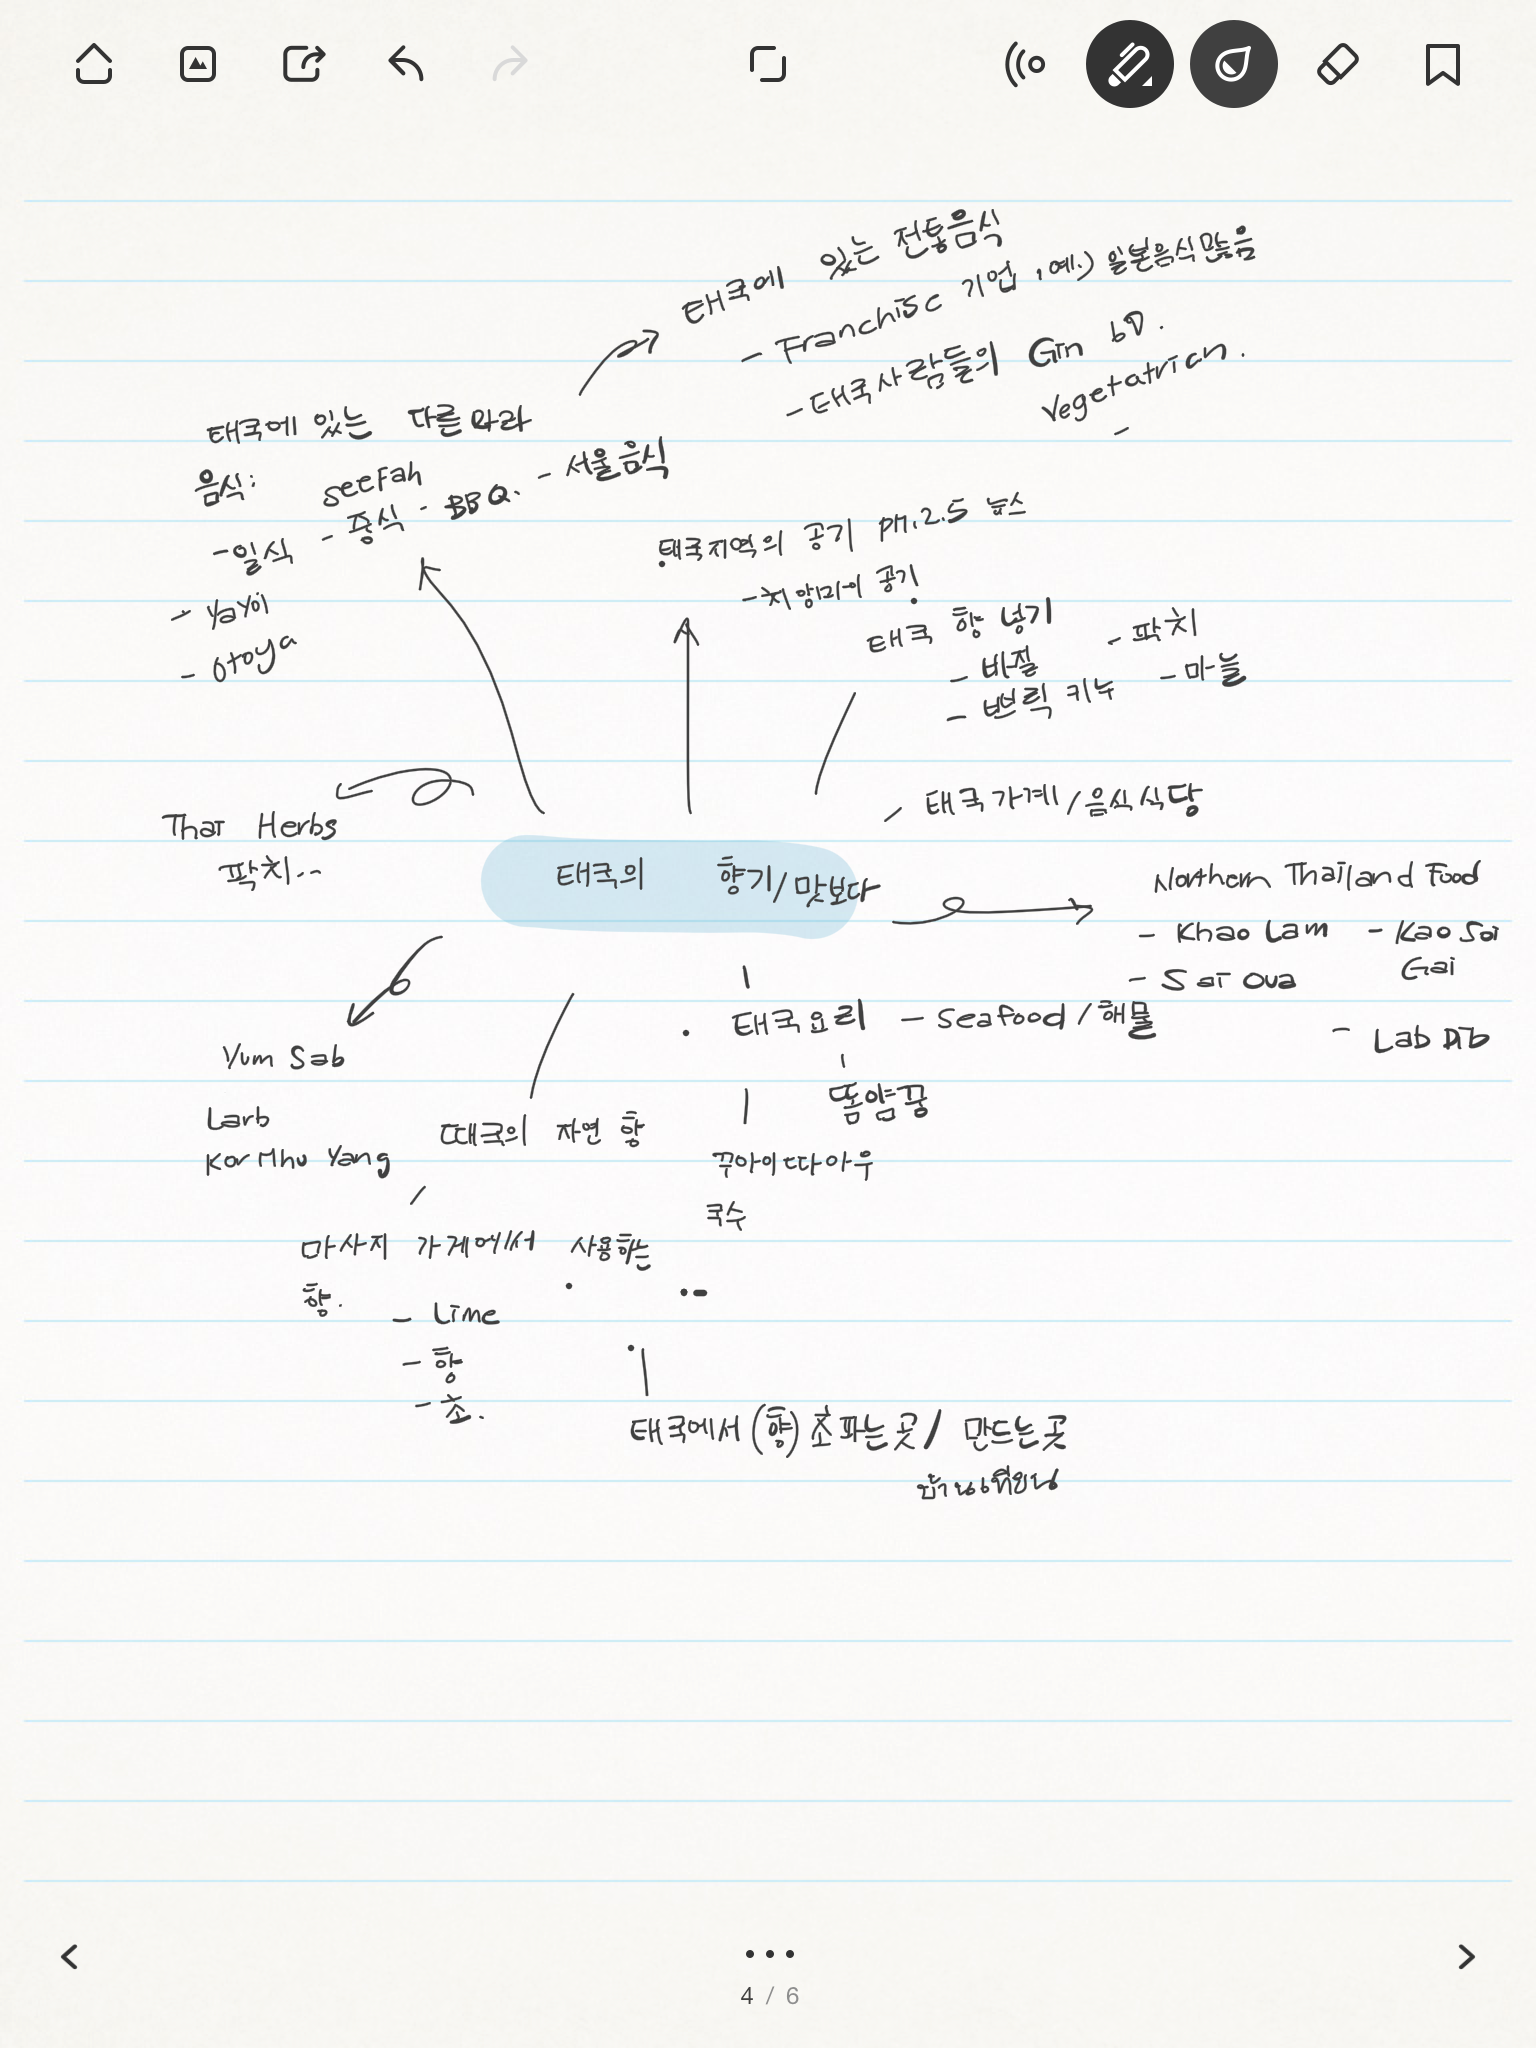 태국에 있는 전통음식
- Franchise 기업, 예.) 일본음식많음
- 태국사람들의 Gin
Vegetatrian.
-
태국에 있는 다른 나라
음식:
seefah
- 일식 - 중식 - BBQ. - 서울음식
- Yayoi
- Otoya
태국지역의 공기 pm.2.5 뉴스
- 치앙마이 공기
태국 향 넣기
- 바질 - 팍치
- 쁘릭 키누 - 마늘
Thai Herbs
팍치..-
- 태국가계/음식식당
태국의 향기/맛보다
Northern Thailand Food
- Khao Lam - Kao Soi
Gai
- Sai Oua
- Lab Dib
태국요리 - Seafood / 해물
똠얌꿍
Yum Sab
Larb
Kor Mhu Yang
때국의 자연 향
꾸아이띠아우
국수
마사지 가게에서 사용하는
향.
- Lime
- 향
- 초.
태국에서 (향) 초파는곳/ 만드는곳
บ้านเทียน
4 / 6